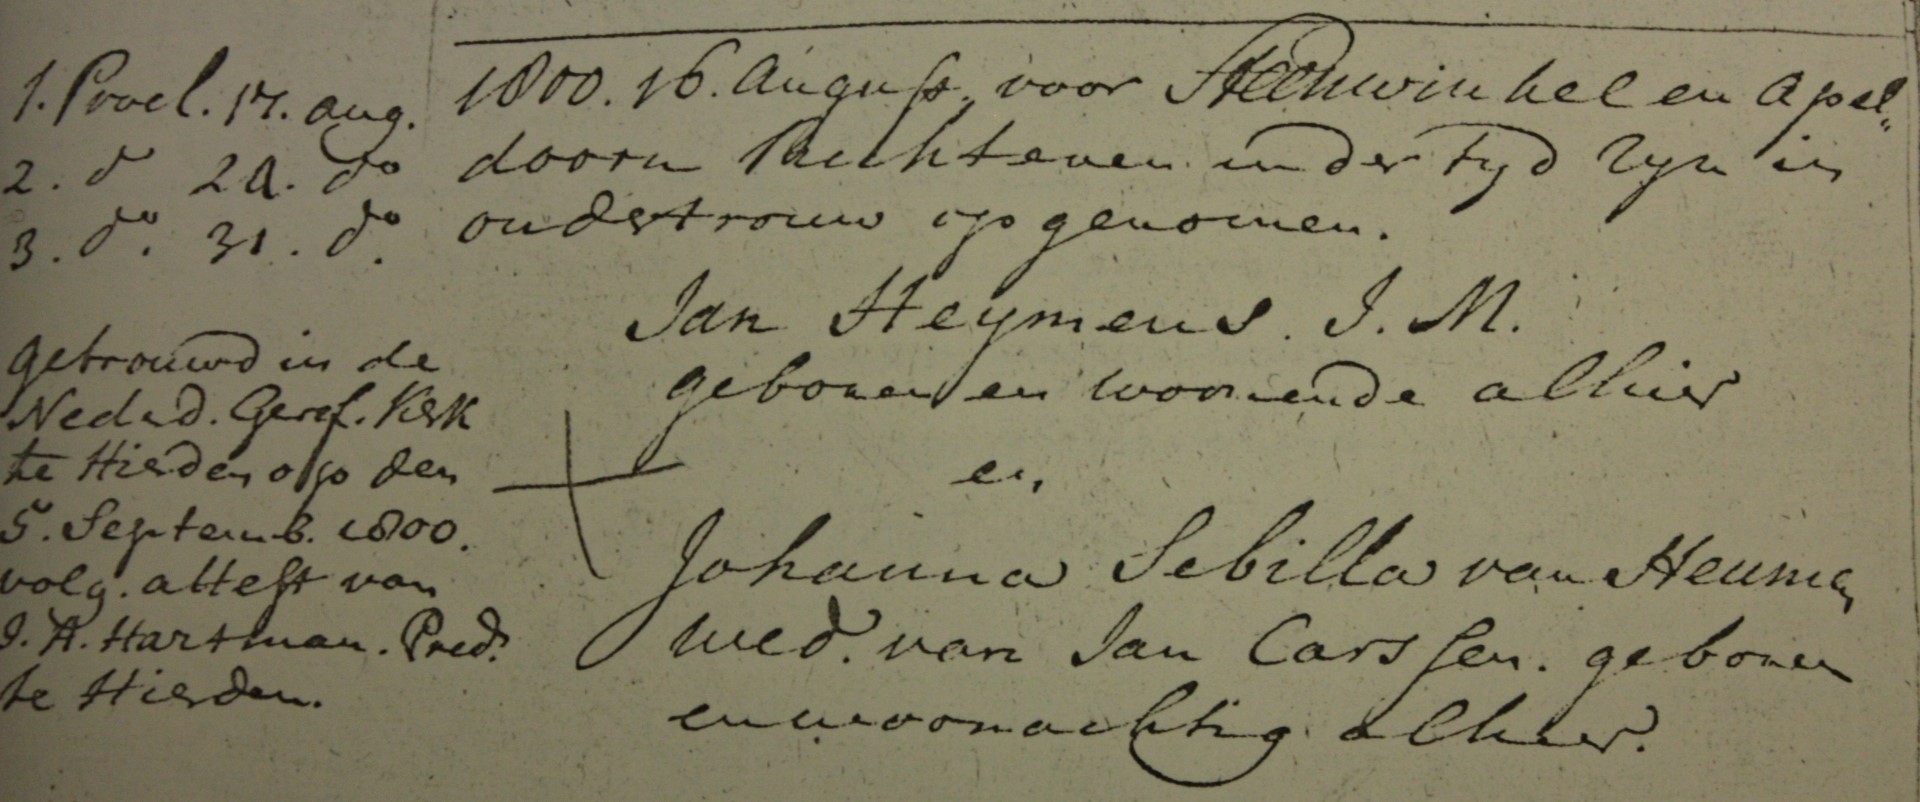 1. Procl. 17. aug.
2. do 24. do
3. do. 31. do.
getrouwd in de
Nederd. Geref. Kerk
te Hierden op den
5. Septemb. 1800.
volg. attest van
J. H. Hartman. Pred.
te Hierden.
1800. 16. August. voor Steenwinkel en Apel„
doorn Richteren in der tyd zyn in
ondertrouw opgenomen.
Jan Heymens. J. M.
geboren en woonende alhier
en,
Johanna Sebilla van Heumen
wed. van Jan Carssen. geboren
en woonachtig alhier.